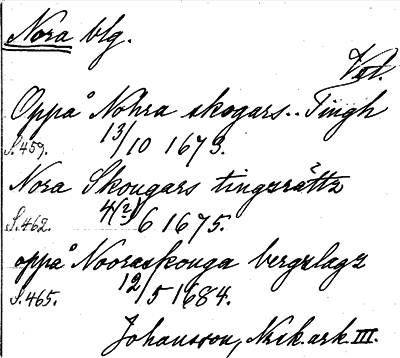 Nora blg.
Vet.
Oppå Nohra skogars.. Tingh
S. 459. 13/10 1673.
Nora Skougars tingzrättz
S. 462. 4(2/3)/6 1675.
oppå Nooraskouga bergzlagz
S. 465. 12/5 1684.
Johansson, Nrik.ark. III.